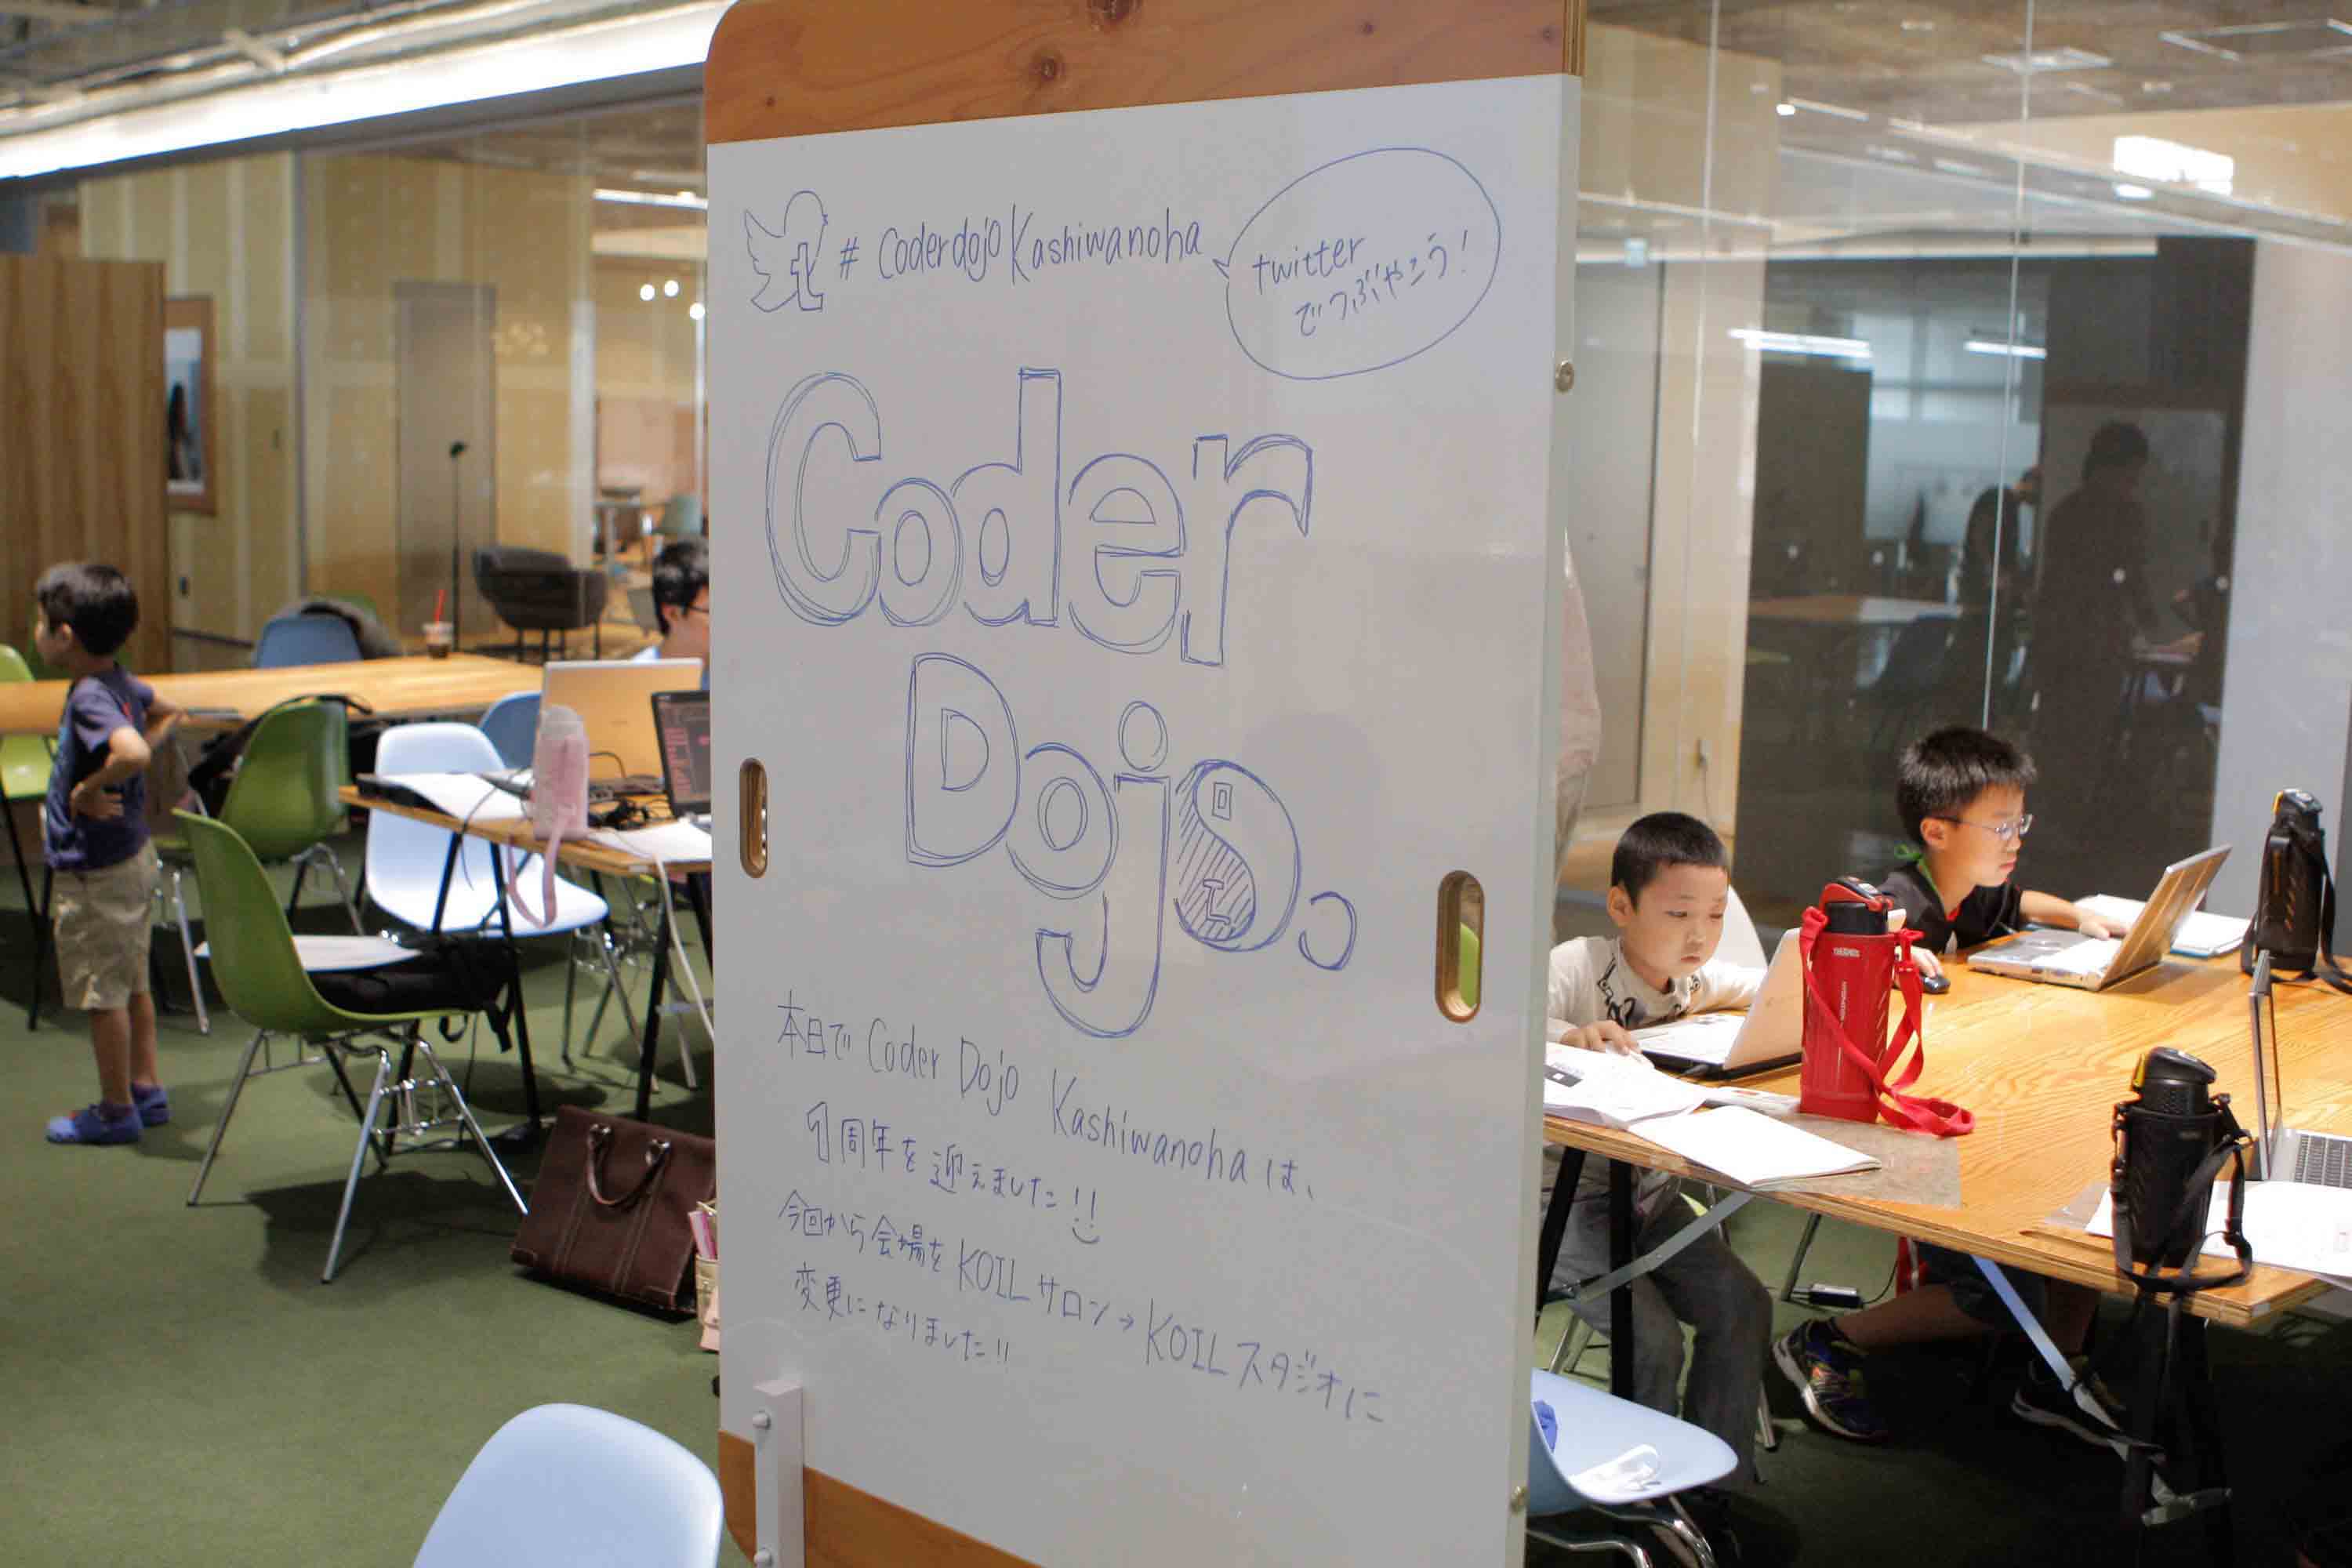 # CoderdojoKashiwanoha
twitter
でつぶやこう!
Coder
Dojo.
本日で Coder Dojo Kashiwanoha は、
1周年を迎えました!!
今回から会場を KOIL サロン→KOIL スタジオに
変更になりました!!
THERMOS